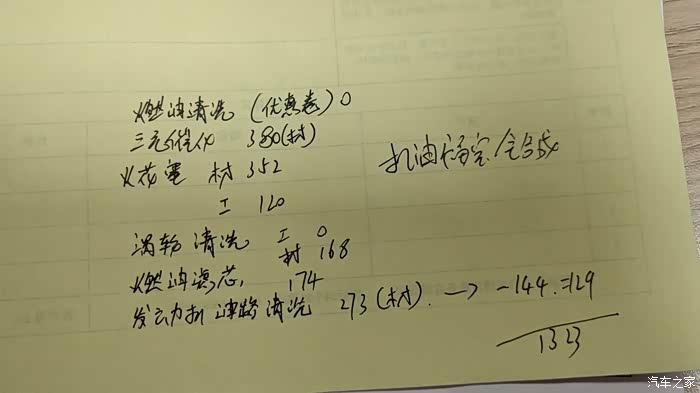 燃油清洗 (优惠卷) 0
三元催化 380(材)
火花塞 材 352
工 120
涡轮清洗 工 0
材 168
燃油滤芯, 174
发动机油路清洗 273(材). → -144.=129
1323
机油 全合成
汽车之家